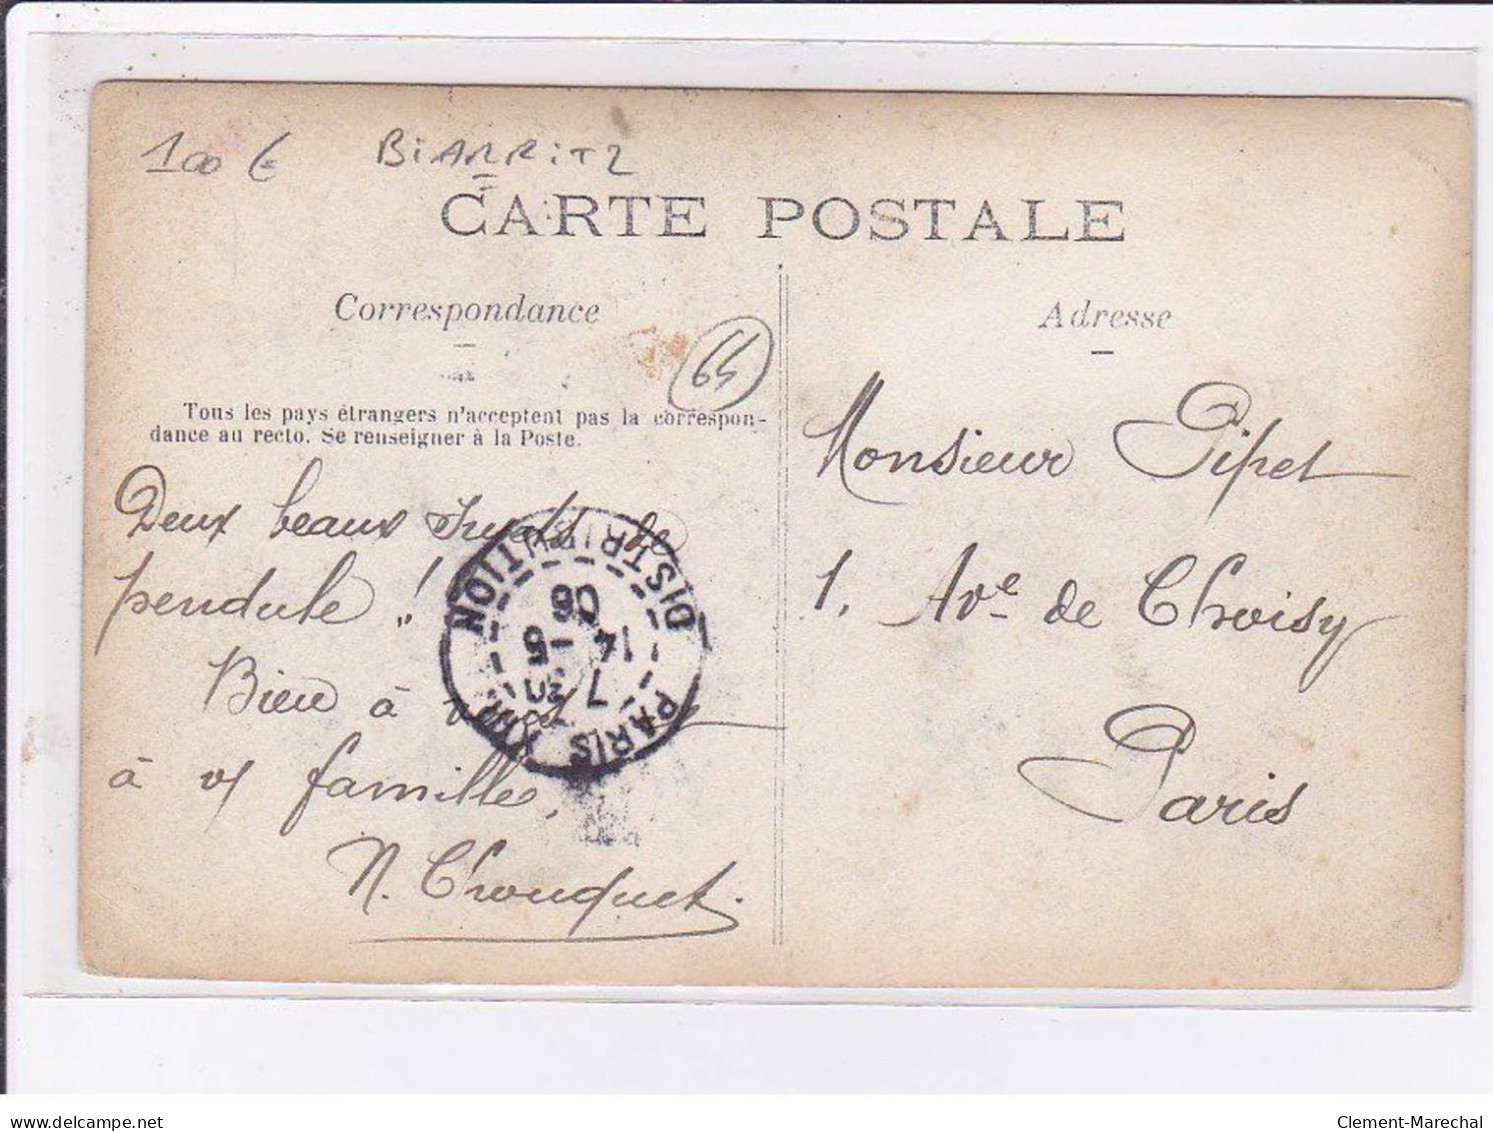 100 € BiARRiTZ
CARTE POSTALE
Correspondance
64
Tous les pays étrangers n'acceptent pas la correspon-
dance au recto. Se renseigner à la Poste.
Deux beaux de
pendule !
Bien à
à vs famille,
N. Chouquet.
PARIS XIII DISTRIBUTION
7
14 -5
06
Adresse
Monsieur Pipet
1. Ave de Choisy
Paris
www.delcampe.net
Clement-Marechal